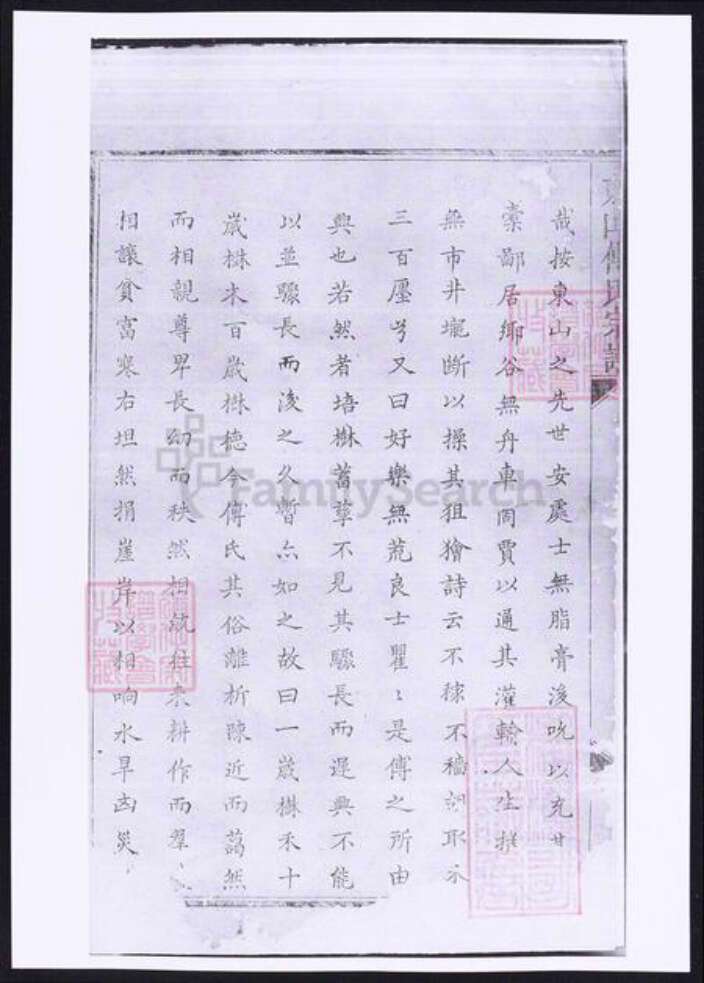 東山傅氏宗譜
哉按東山之先世安處士無脂膏浚吮以充甘
橐鄙居鄉谷無舟車商賈以通其灌輸人生
無市井壠斷以操其狙獪詩云不稼不穡胡取禾
三百廛兮又曰好樂無荒良士瞿〻是傅之所由
興也若然者培樹蓄孳不見其驟長而遲興不能
以並驟長而浚之久暫亦如之故曰一歲樹禾十
歲樹木百歲樹德今傅氏其俗離析踈近而藹然
而相親尊卑長幼而秩然相敬往來耕作而羣
相讓貧富寒右坦然捐崖岸以相响水旱凶災
FamilySearch